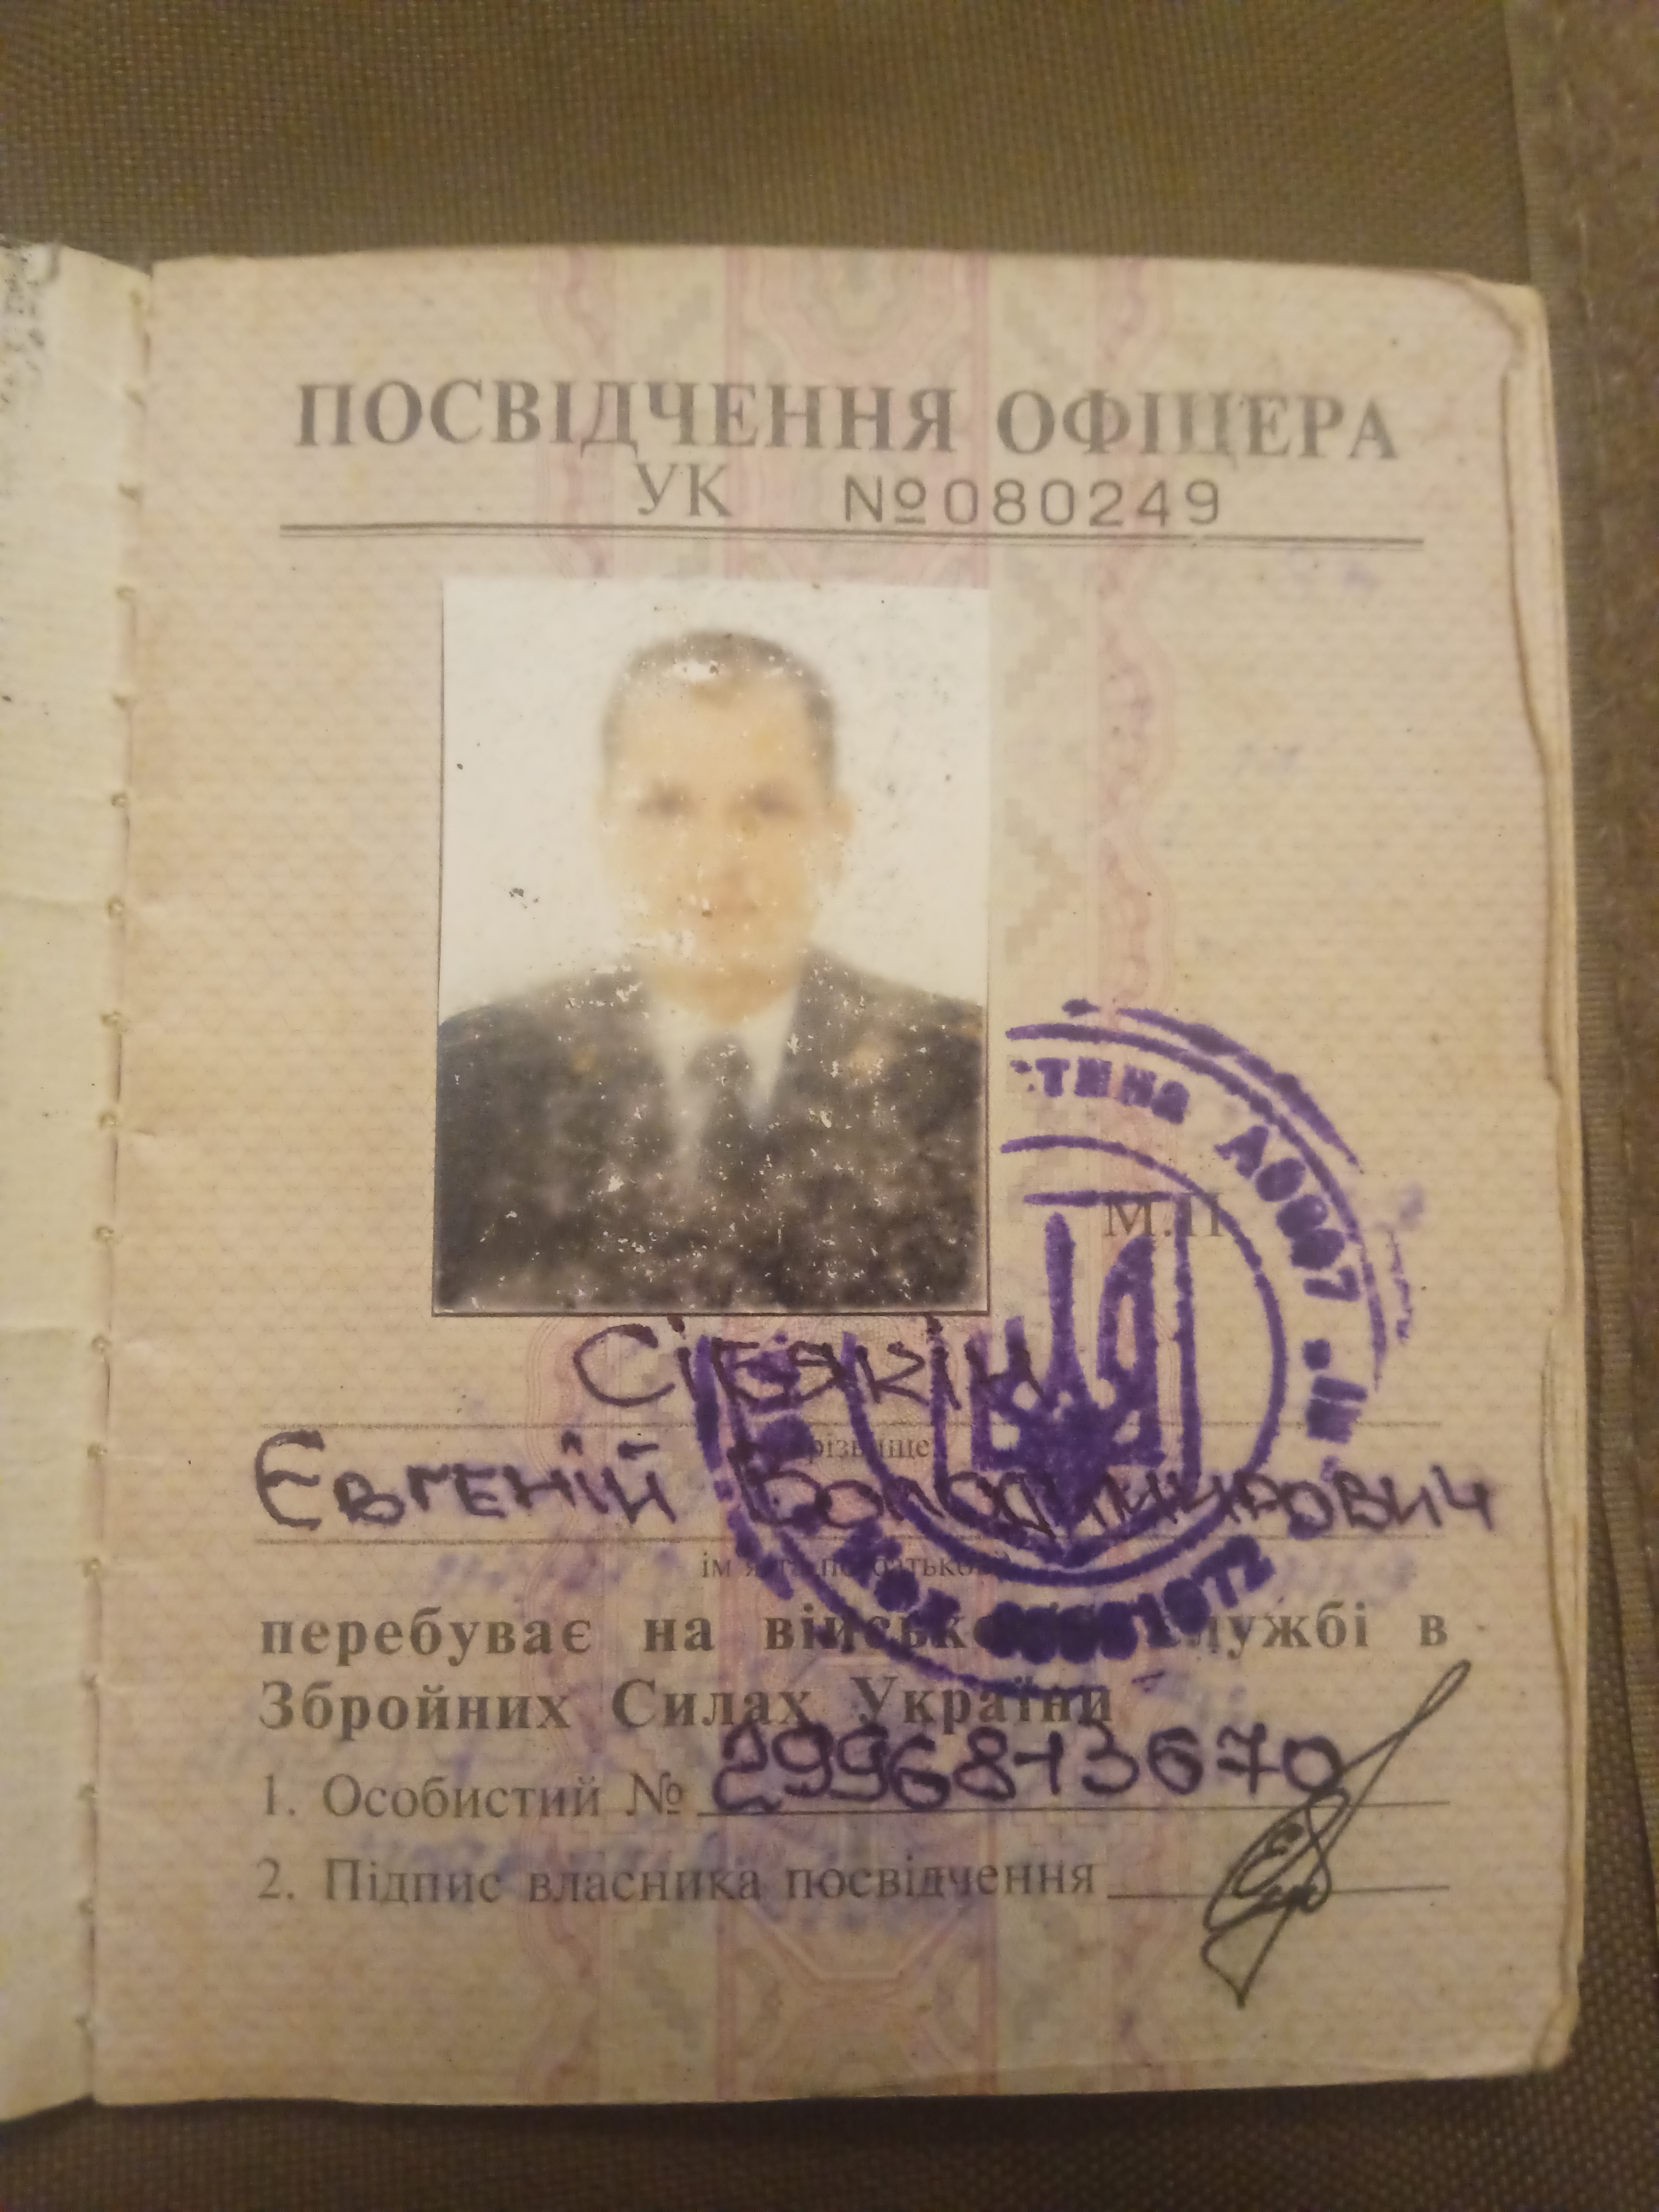 ПОСВІДЧЕННЯ ОФІЦЕРА
УК №080249
М.П
Сівякін
Євгеній Володимирович
перебуває на військовій службі в
Збройних Силах України
1. Особистий № 2996813670
2. Підпис власника посвідчення